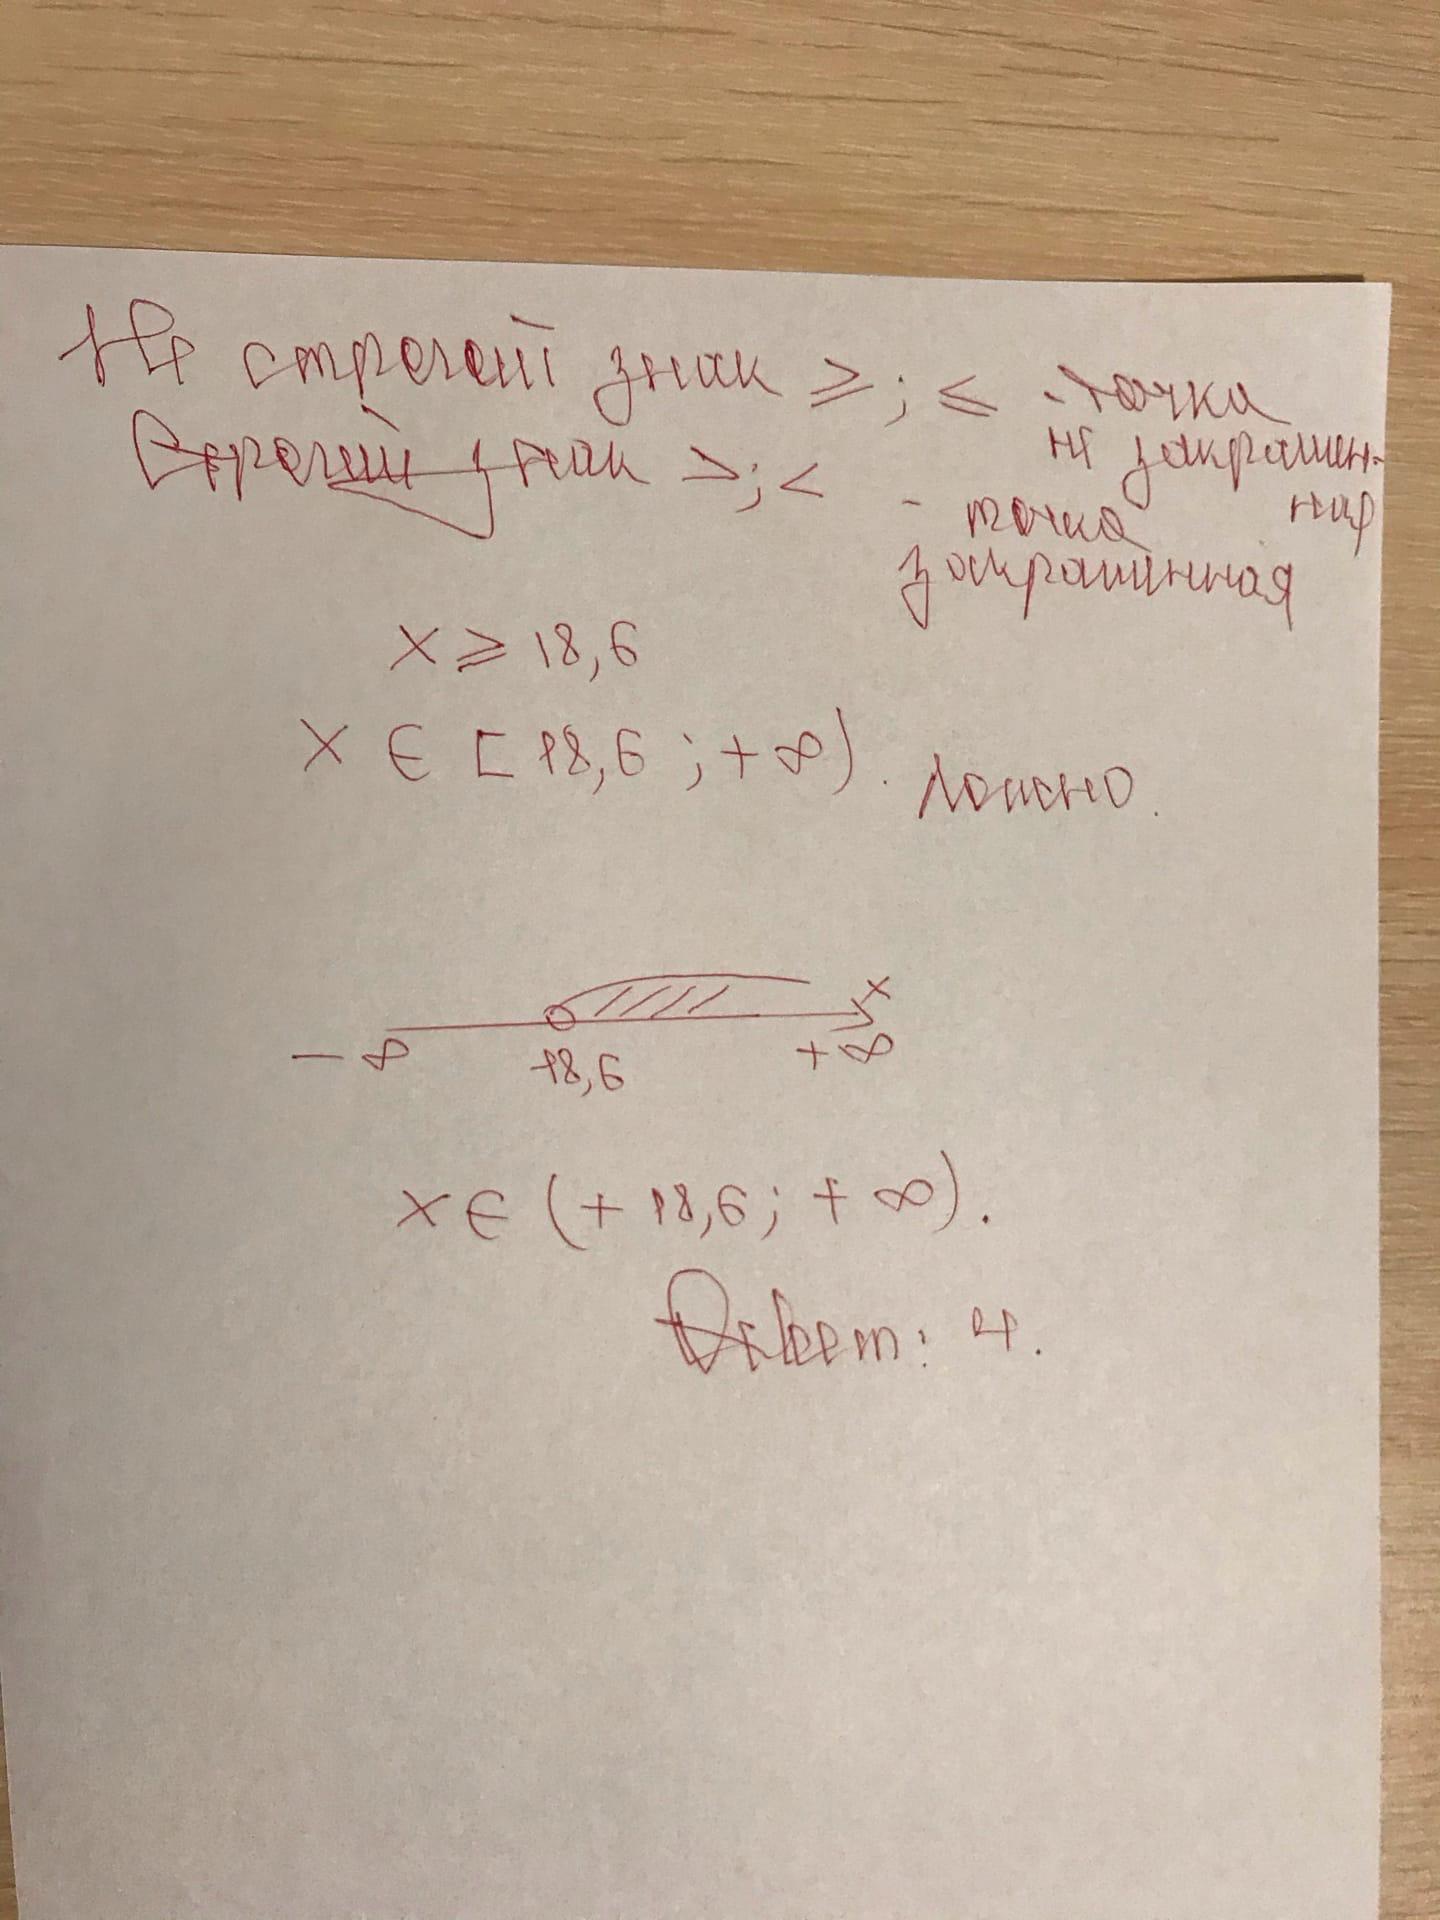 Не строгий знак ≥ ; ≤ - точка
не закрашен-
ная
Строгий знак > ; < - точка
закрашенная
x ≥ 18,6
x ∈ [18,6 ; +∞). Ложно.
x
-∞ 18,6 +∞
x ∈ (+18,6; +∞).
Ответ: 4.